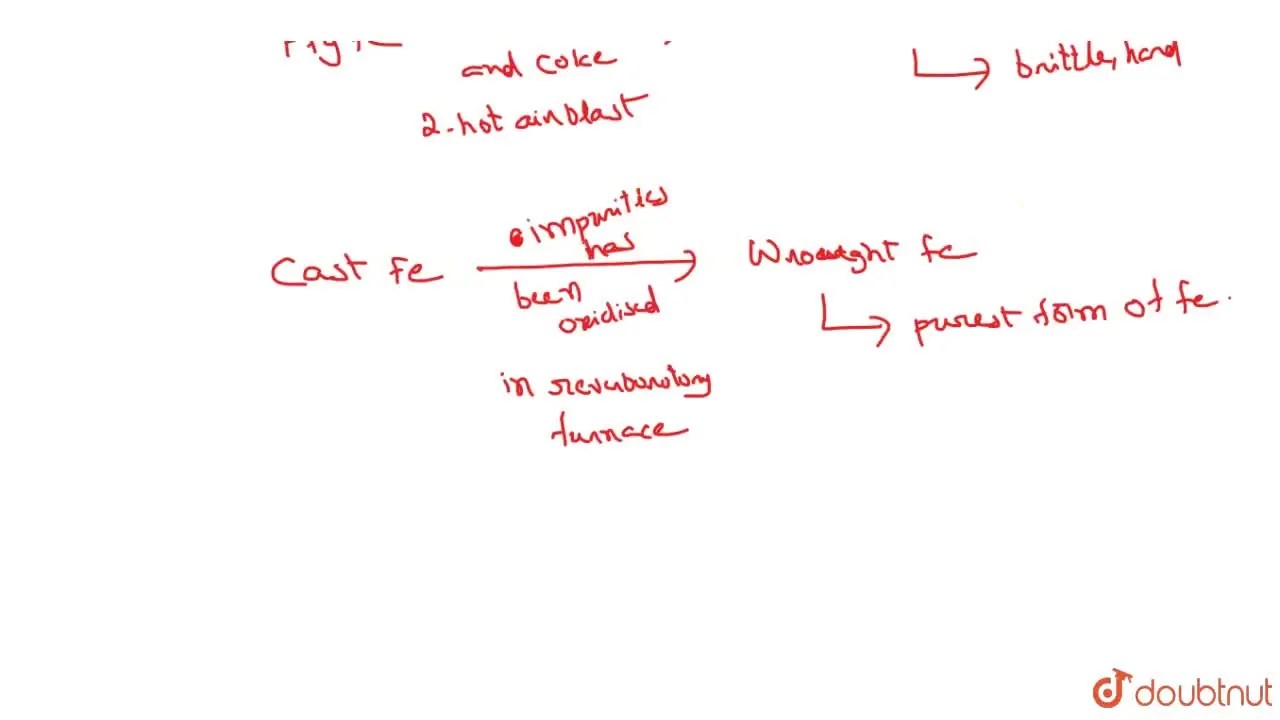 and coke
brittle, hard
2. hot air blast
impurities
has
Cast Fe
Wrought Fe
been
oxidised
purest form of Fe.
in reverberatory
furnace
doubtnut